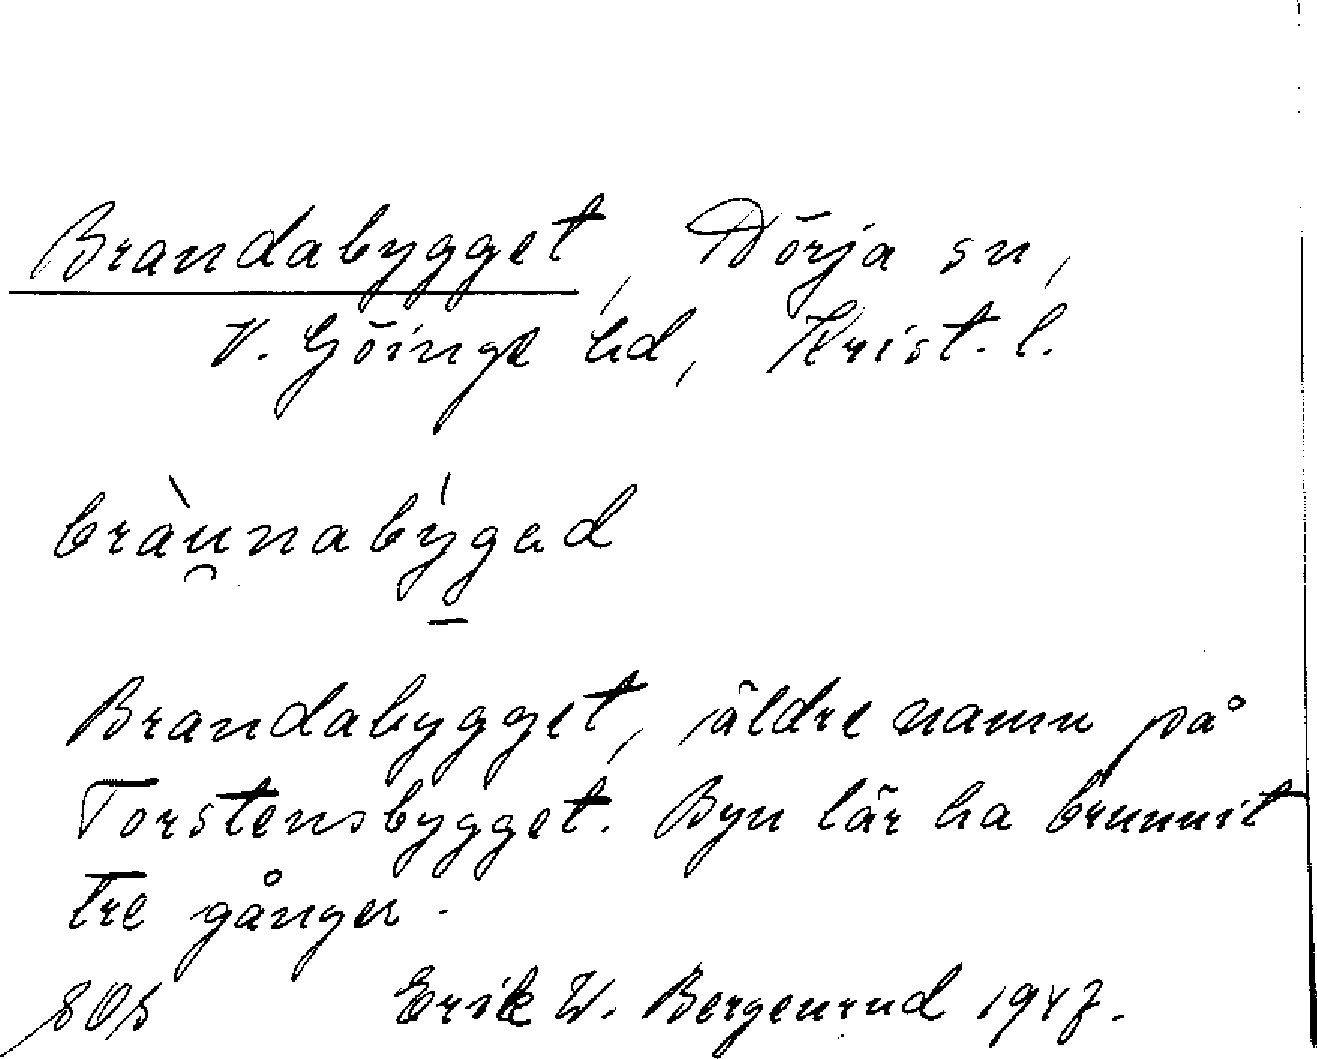 Brandabygget, Dörja sn,
V. Göinge hd, Krist. l.
bràu̯nabýgad
Brandabygget, äldre namn på
Torstensbygget. Byn lär ha brunnit
tre gånger.
Erik W. Bergenrud 1947.